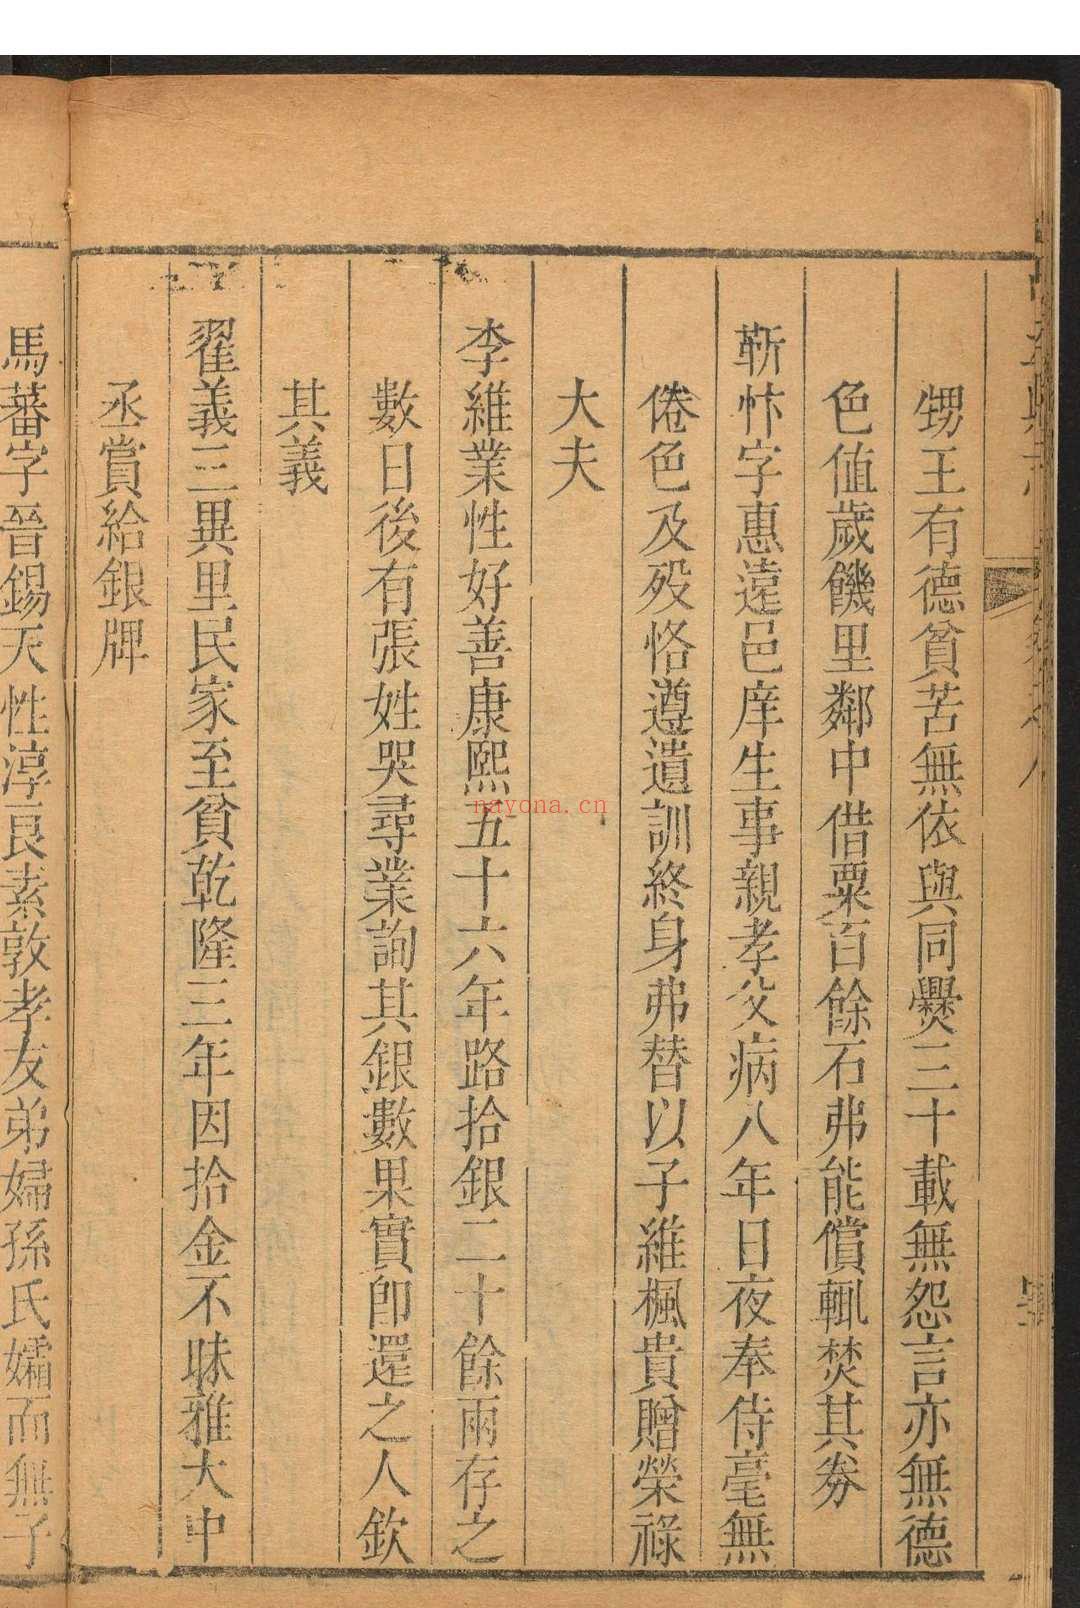 甥王有德貧苦無依與同爨三十載無怨言亦無德
色値歲饑里鄰中借粟百餘石弗能償輒焚其券
靳忭字惠遠邑庠生事親孝父病八年日夜奉侍毫無
倦色及歿恪遵遺訓終身弗替以子維楓貴贈榮祿
大夫
李維業性好善康熙五十六年路拾銀二十餘兩存之
數日後有張姓哭尋業詢其銀數果實卽還之人欽
其義
翟義三異里民家至貧乾隆三年因拾金不昧雅大中
丞賞給銀牌
馬蕃字晉錫天性淳良素敦孝友弟婦孫氏孀而無子
nayona.cn